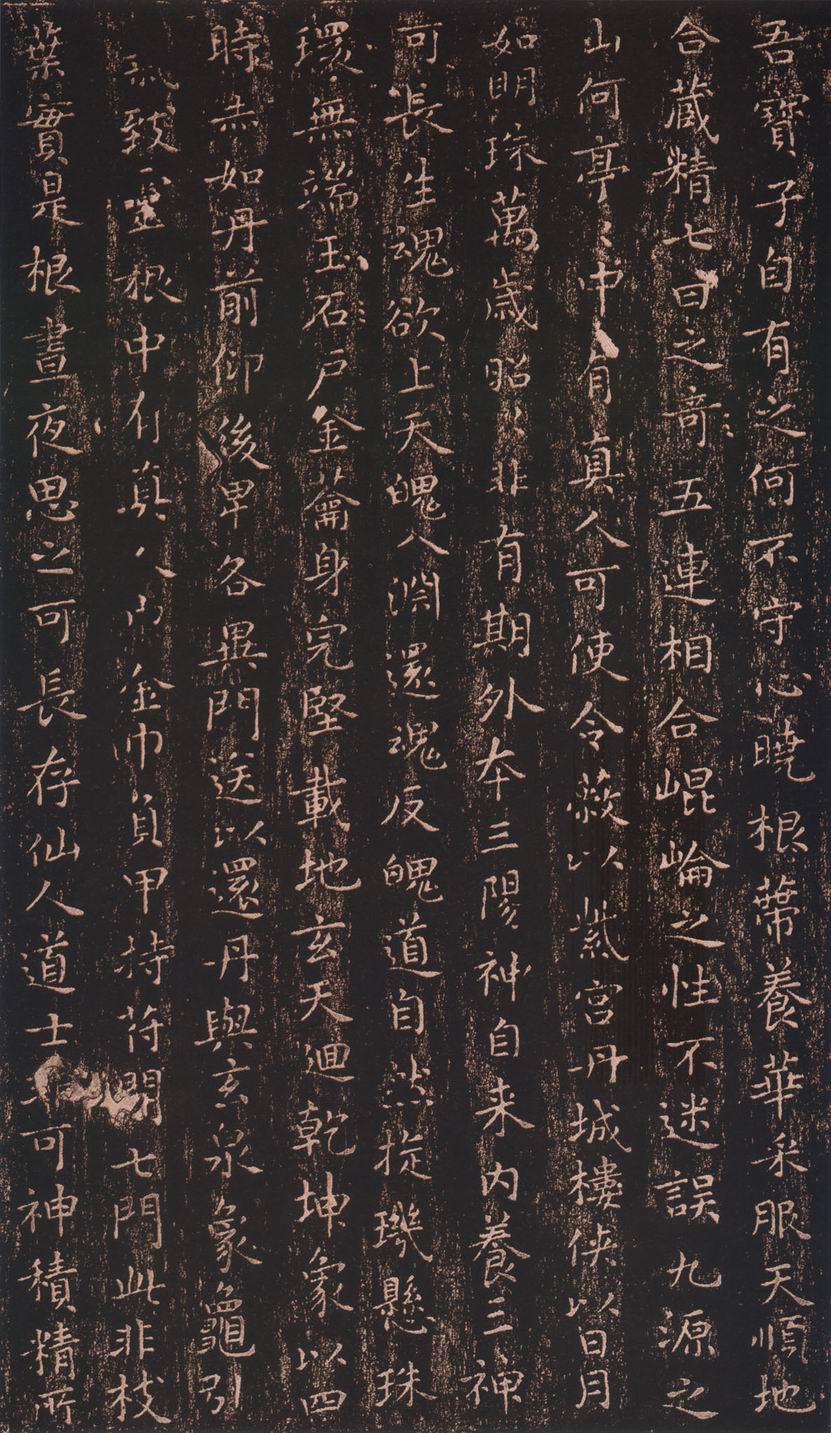 吾寶子自有之何不守心曉根蒂養華采服天順地
合藏精七日之奇五連相合崐崘之性不迷誤九源之
山何亭〻中有真人可使令蔽以紫宫丹城樓俠以日月
如明珠萬歲昭〻非有期外本三陽神自来内養三神
可長生魂欲上天魄入淵還魂反魄道自然㨁璣懸珠
環無端玉石戶金籥身完堅載地玄天迴乾坤象以四
時赤如丹前仰後卑各異門送以還丹與玄泉象龜引
氣致靈根中有真人巾金巾負甲持苻開七門此非枝
葉實是根晝夜思之可長存仙人道士非可神積精所